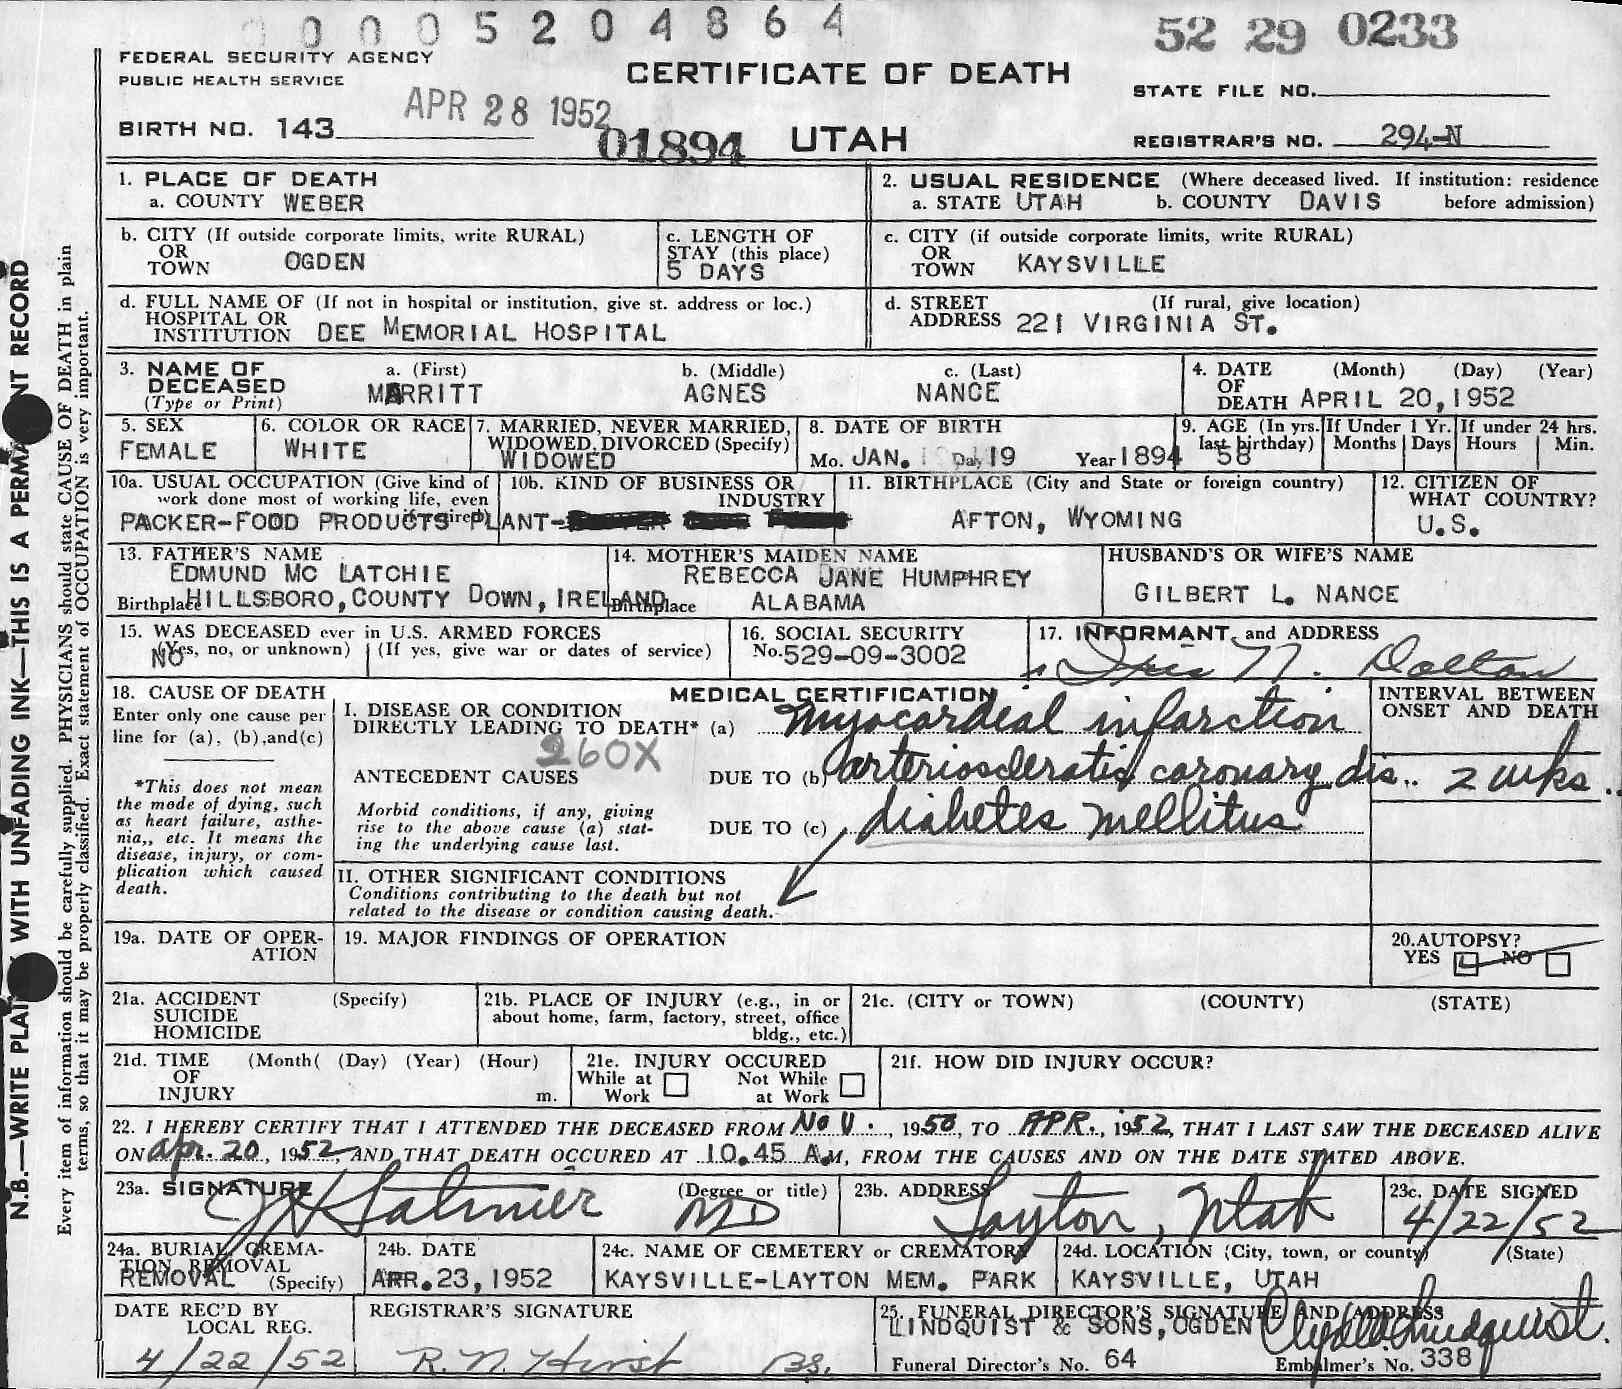 0 0 0 0 5 2 0 4 8 6 4
52 29 0233
FEDERAL SECURITY AGENCY
PUBLIC HEALTH SERVICE
CERTIFICATE OF DEATH
STATE FILE NO.
APR 28 1952
BIRTH NO. 143
01894 UTAH
REGISTRAR'S NO. 294-N
1. PLACE OF DEATH
a. COUNTY WEBER
2. USUAL RESIDENCE (Where deceased lived. If institution: residence
a. STATE UTAH b. COUNTY DAVIS before admission)
b. CITY (If outside corporate limits, write RURAL)
OR
TOWN OGDEN
c. LENGTH OF
STAY (this place)
5 DAYS
c. CITY (if outside corporate limits, write RURAL)
OR
TOWN KAYSVILLE
d. FULL NAME OF (If not in hospital or institution, give st. address or loc.)
HOSPITAL OR
INSTITUTION DEE MEMORIAL HOSPITAL
d. STREET (If rural, give location)
ADDRESS 221 VIRGINIA ST.
3. NAME OF a. (First) b. (Middle) c. (Last)
DECEASED
(Type or Print) MARRITT AGNES NANCE
4. DATE (Month) (Day) (Year)
OF
DEATH APRIL 20, 1952
5. SEX
FEMALE
6. COLOR OR RACE
WHITE
7. MARRIED, NEVER MARRIED,
WIDOWED, DIVORCED (Specify)
WIDOWED
8. DATE OF BIRTH
Mo. JAN. Day 19 Year 1894
9. AGE (In yrs.
last birthday)
58
If Under 1 Yr.
Months Days
If under 24 hrs.
Hours Min.
10a. USUAL OCCUPATION (Give kind of
work done most of working life, even
if retired)
PACKER-FOOD PRODUCTS PLANT-
10b. KIND OF BUSINESS OR
INDUSTRY
11. BIRTHPLACE (City and State or foreign country)
AFTON, WYOMING
12. CITIZEN OF
WHAT COUNTRY?
U.S.
13. FATHER'S NAME
EDMUND MC LATCHIE
Birthplace HILLSBORO, COUNTY DOWN, IRELAND
14. MOTHER'S MAIDEN NAME
REBECCA JANE HUMPHREY
Birthplace ALABAMA
HUSBAND'S OR WIFE'S NAME
GILBERT L. NANCE
15. WAS DECEASED ever in U.S. ARMED FORCES
(Yes, no, or unknown) (If yes, give war or dates of service)
NO
16. SOCIAL SECURITY
No. 529-09-3002
17. INFORMANT and ADDRESS
Iris N. Dalton
18. CAUSE OF DEATH
Enter only one cause per
line for (a), (b), and (c)
*This does not mean
the mode of dying, such
as heart failure, asthe-
nia,, etc. It means the
disease, injury, or com-
plication which caused
death.
MEDICAL CERTIFICATION
I. DISEASE OR CONDITION
DIRECTLY LEADING TO DEATH* (a) Myocardial infarction
260X
ANTECEDENT CAUSES DUE TO (b) arteriosclerotic coronary dis.
Morbid conditions, if any, giving
rise to the above cause (a) stat-
ing the underlying cause last.
DUE TO (c) diabetes mellitus
INTERVAL BETWEEN
ONSET AND DEATH
2 wks
II. OTHER SIGNIFICANT CONDITIONS
Conditions contributing to the death but not
related to the disease or condition causing death.
19a. DATE OF OPER-
ATION
19. MAJOR FINDINGS OF OPERATION
20. AUTOPSY?
YES NO
21a. ACCIDENT (Specify)
SUICIDE
HOMICIDE
21b. PLACE OF INJURY (e.g., in or
about home, farm, factory, street, office
bldg., etc.)
21c. (CITY or TOWN) (COUNTY) (STATE)
21d. TIME (Month( (Day) (Year) (Hour)
OF
INJURY m.
21e. INJURY OCCURED
While at Not While
Work at Work
21f. HOW DID INJURY OCCUR?
22. I HEREBY CERTIFY THAT I ATTENDED THE DECEASED FROM NOV., 1950, TO APR., 1952, THAT I LAST SAW THE DECEASED ALIVE
ON Apr. 20, 1952, AND THAT DEATH OCCURED AT 10.45 A.M, FROM THE CAUSES AND ON THE DATE STATED ABOVE.
23a. SIGNATURE (Degree or title)
MD
23b. ADDRESS
Layton, Utah
23c. DATE SIGNED
4/22/52
24a. BURIAL, CREMA-
TION, REMOVAL
REMOVAL (Specify)
24b. DATE
APR. 23, 1952
24c. NAME OF CEMETERY or CREMATORY
KAYSVILLE-LAYTON MEM. PARK
24d. LOCATION (City, town, or county) (State)
KAYSVILLE, UTAH
DATE REC'D BY
LOCAL REG.
4/22/52
REGISTRAR'S SIGNATURE
R. N. Hirst
25. FUNERAL DIRECTOR'S SIGNATURE AND ADDRESS
LINDQUIST & SONS, OGDEN Clyde Lindquist.
Funeral Director's No. 64 Embalmer's No. 338
N.B.—WRITE PLAINLY WITH UNFADING INK—THIS IS A PERMANENT RECORD
Every item of information should be carefully supplied. PHYSICIANS should state CAUSE OF DEATH in plain
terms, so that it may be properly classified. Exact statement of OCCUPATION is very important.